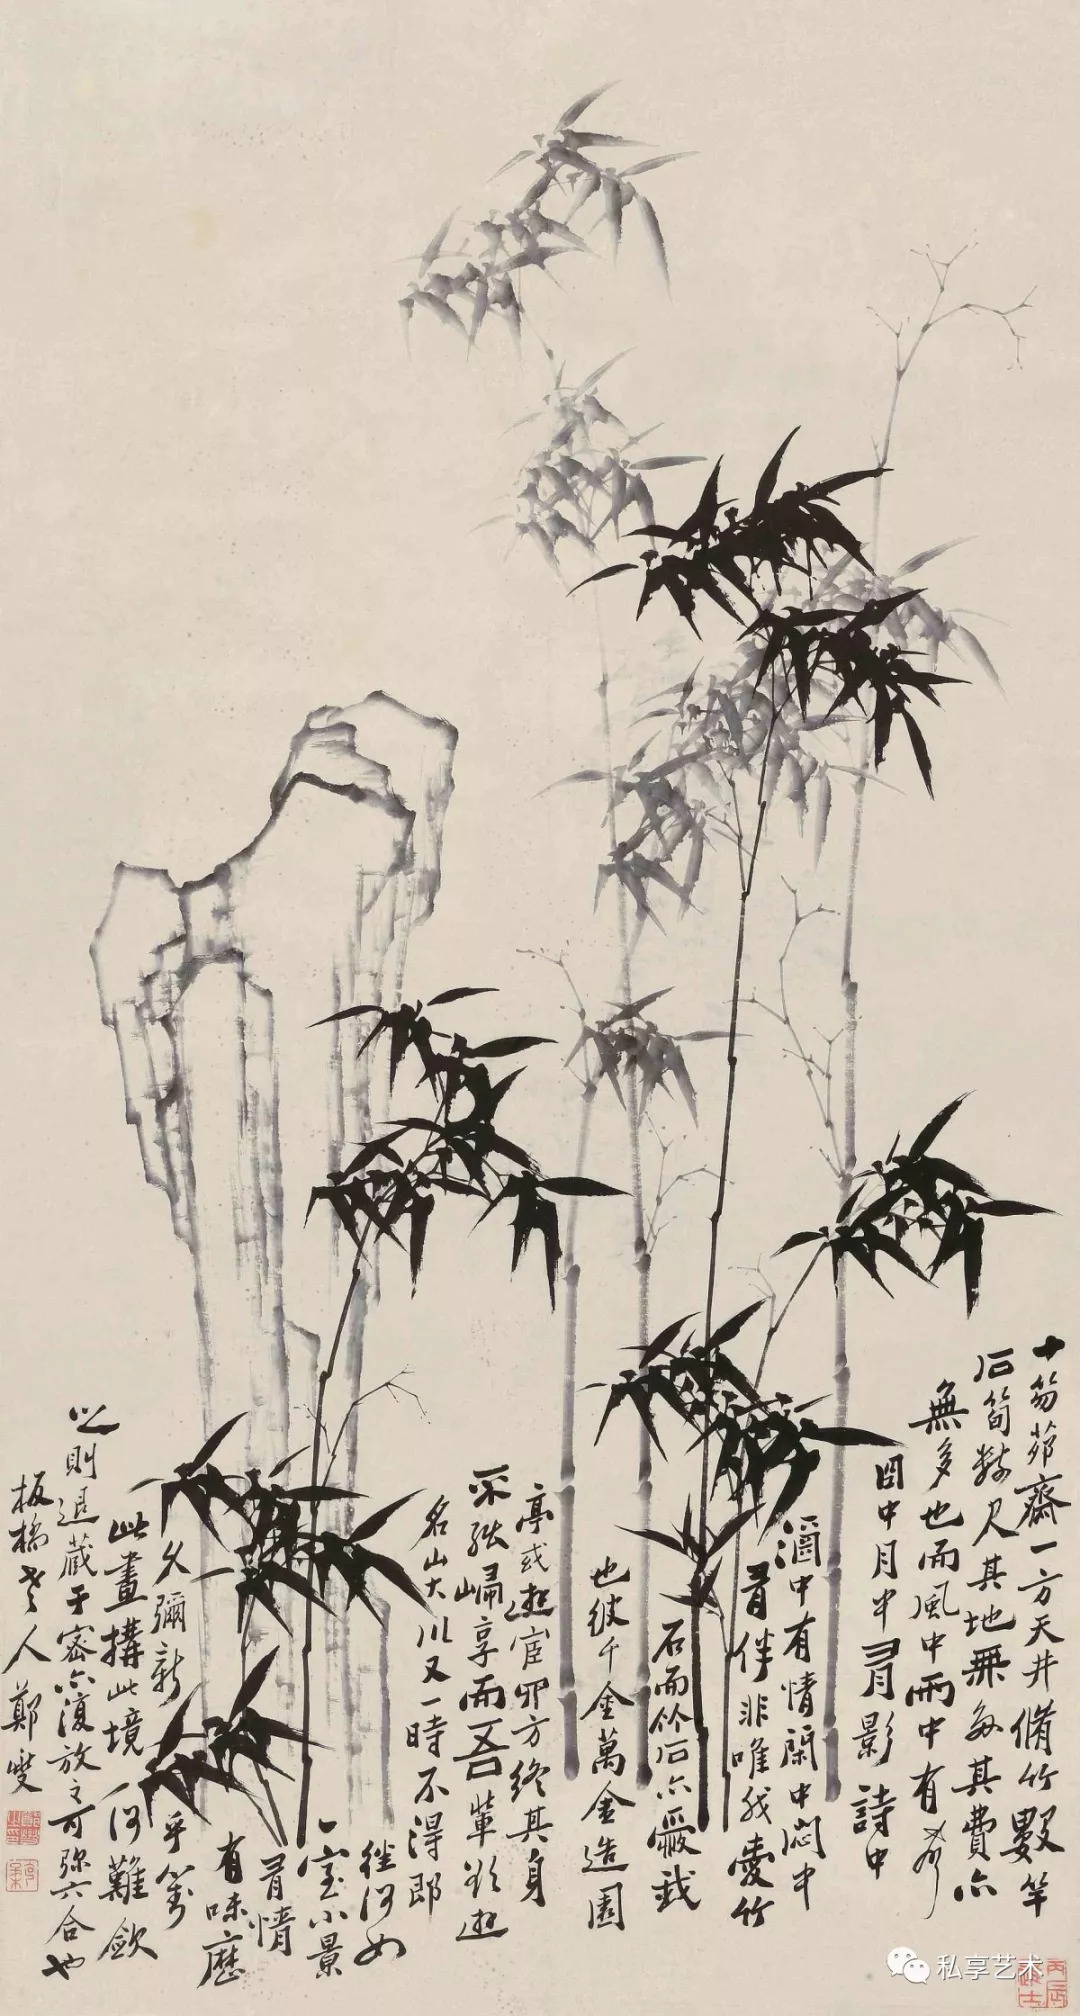 十笏茆齋一方天井脩竹數竿
石筍數尺其地無多其費亦
無多也而風中雨中有聲
日中月中有影詩中
酒中有情閑中悶中
有伴非唯我愛竹
石而竹石亦愛我
也彼千金萬金造園
亭或遊宦四方終其身
不能歸享而吾輩欲遊
名山大川又一時不得即
往何如
一室小景
有情
有味歷
久彌新乎對
此畫搆此境何難斂
之則退藏于密亦復放之可弥六合也
板橋老人鄭燮
私享艺术